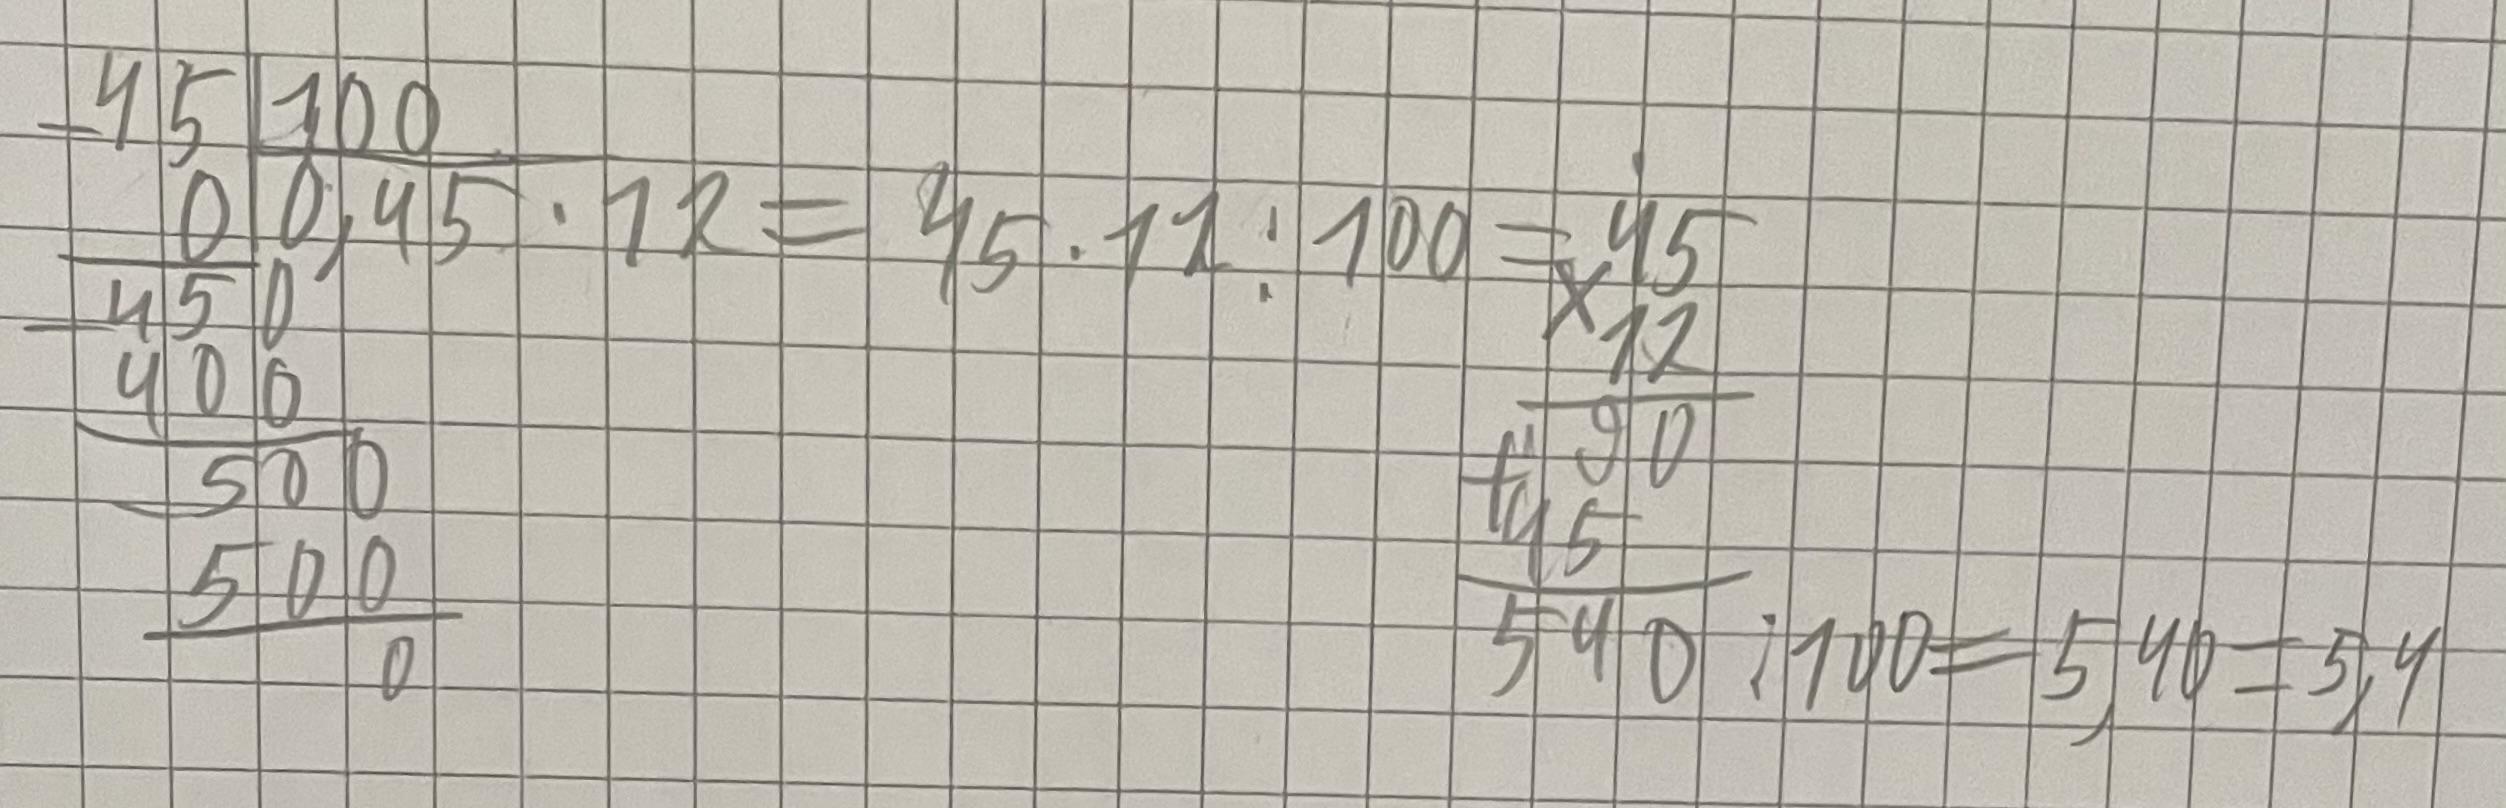 -45 100
0 0,45 · 12 = 45 · 12 : 100 = 45
-450 x 12
400 90
-500 +45
500 540 : 100 = 5,40 = 5,4
0